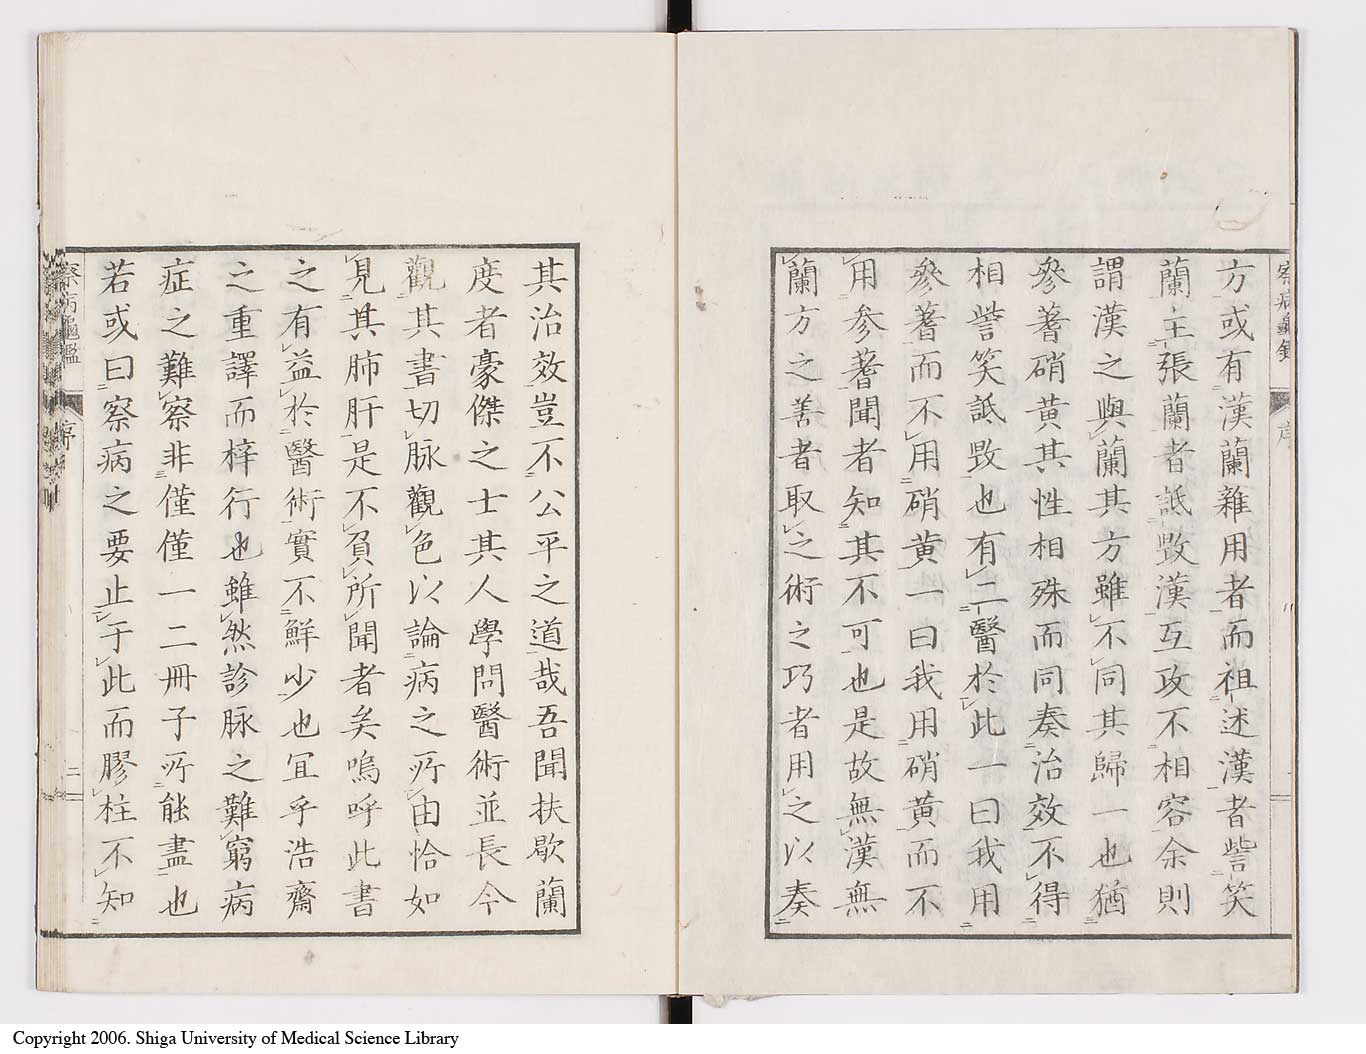 方或有漢蘭雜用者而祖述漢者訾笑
蘭主張蘭者詆毀漢互攻不相容余則
謂漢之與蘭其方雖不同其歸一也猶
參蓍硝黄其性相殊而同奏治效不得
相訾笑詆毀也有二醫於此一曰我用
參蓍而不用硝黄一曰我用硝黄而不
用參蓍聞者知其不可也是故無漢無
蘭方之善者取之術之巧者用之以奏
其治效豈不公平之道哉吾聞扶歇蘭
度者豪傑之士其人學問醫術並長今
觀其書切脉觀色以論病之所由恰如
見其肺肝是不負所聞者矣嗚呼此書
之有益於醫術實不鮮少也宜乎浩齋
之重譯而梓行也雖然診脉之難窮病
症之難察非僅僅一二冊子所能盡也
若或曰察病之要止于此而膠柱不知
察病龜鑑
序
二
Copyright 2006. Shiga University of Medical Science Library